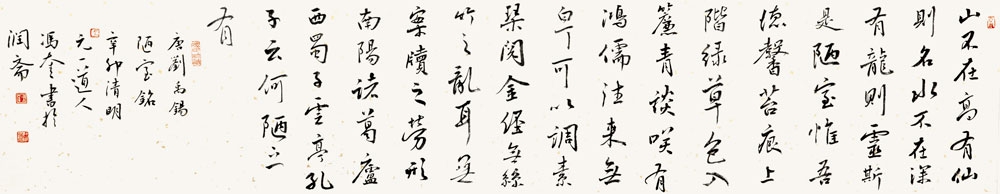 山不在高有仙
則名水不在深
有龍則靈斯
是陋室惟吾
德馨苔痕上
階綠草色入
簾青談咲有
鴻儒往来無
白丁可以調素
琴閱金經無絲
竹之亂耳無
案牘之勞形
南陽諸葛廬
西蜀子雲亭孔
子云何陋之
有
唐劉禹錫
陋室銘
辛卯清明
元一道人
馮奎書於
潤斋